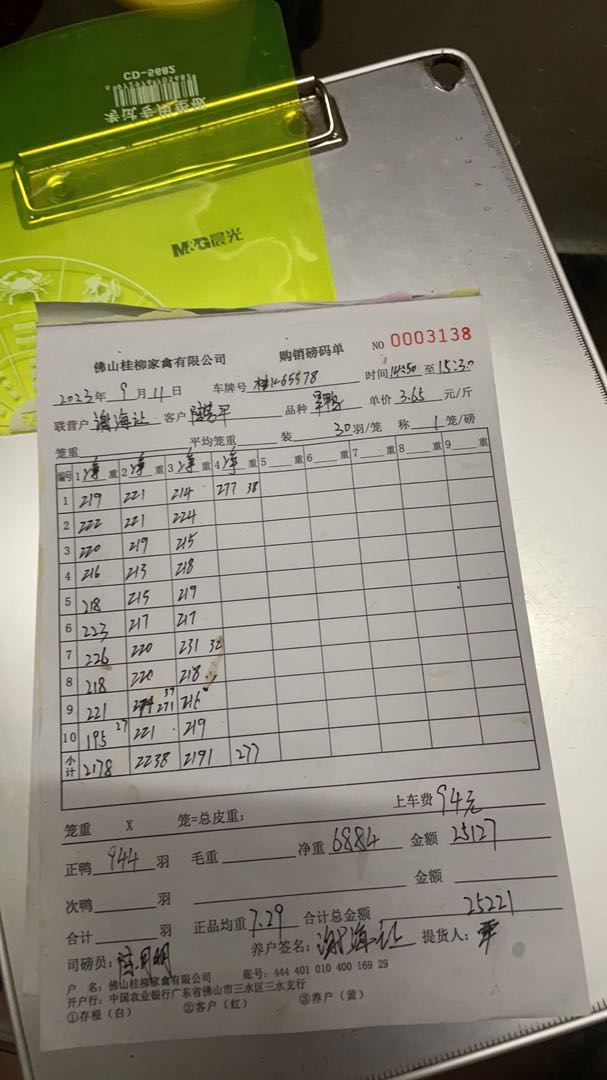 CD-5682
M&G晨光
佛山桂柳家禽有限公司 购销磅码单 NO 0003138
2023年 9月 11日 车牌号 65578 时间 14:50 至 15:30
联营户 谢海让 客户 品种 单价 3.65 元/斤
笼重 平均笼重 装 30 羽/笼 称 1 笼/磅
编号 1 净 重 2 净 重 3 净 重 4 净 重 5 重 6 重 7 重 8 重 9 重
1 219 221 214 277 38
2 222 221 224
3 220 219 215
4 216 213 218
5 218 215 219
6 223 217 217
7 226 220 231 32
8 218 220 218
9 221 37 271 216
10 195 27 221 219
小计 2178 2238 2191 277
笼重 X 笼=总皮重: 上车费 94元
正鸭 944 羽 毛重 净重 6884 金额 25127
次鸭 羽 金额
合计 羽 正品均重 7.29 合计总金额 25221
司磅员: 养户签名: 谢海让 提货人:
户 名: 佛山桂柳家禽有限公司 账号: 444 401 010 400 169 29
开户行: 中国农业银行广东省佛山市三水区三水支行
①存根(白) ②客户(红) ③养户(黄)